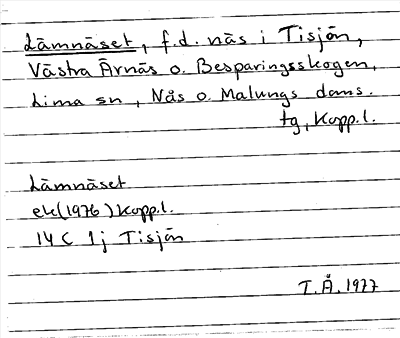 Lämnäset, f.d. näs i Tisjön,
Västra Ärnäs o. Besparingsskogen,
Lima sn, Nås o. Malungs doms.
tg, Kopp.l.
Lämnäset
ek(1976) Kopp.l.
14 C 1j Tisjön
T.Å. 1977